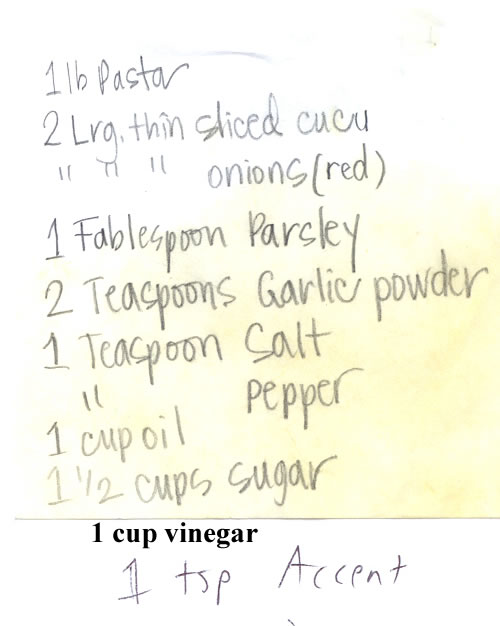 1 lb Pasta
2 Lrg. thin sliced cucu
" " " onions (red)
1 Tablespoon Parsley
2 Teaspoons Garlic powder
1 Teaspoon Salt
" pepper
1 cup oil
1 1/2 cups sugar
1 cup vinegar
1 tsp Accent